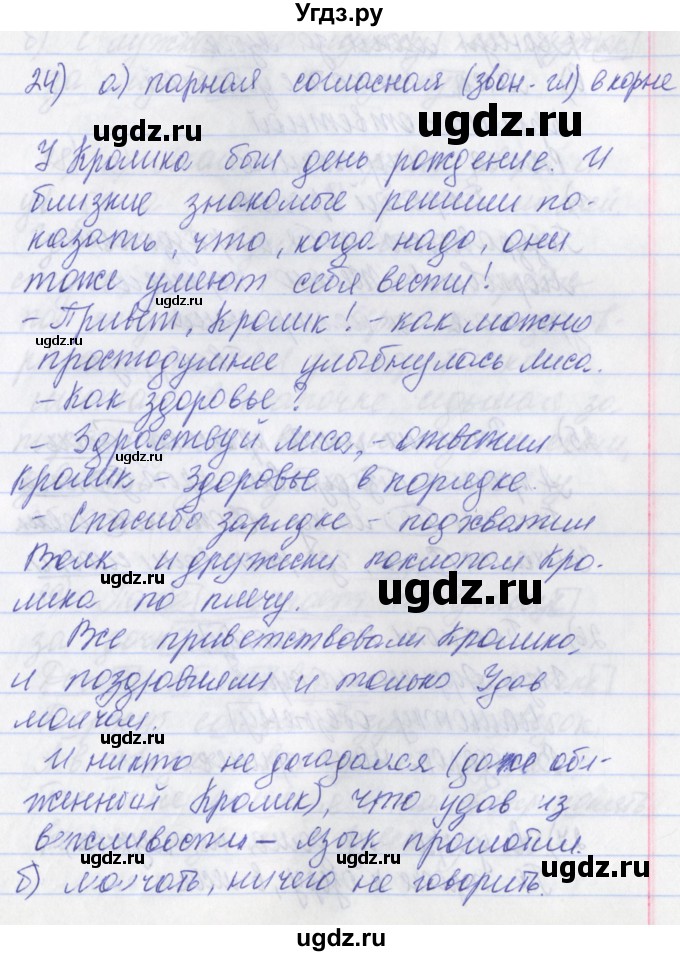 Угдз.ру
24) а) парная согласная (звон-гл) в корне
ugdz.ru
ugdz.ru
У Кролика был день рождение. И
близкие знакомые решили по-
казать, что, когда надо, они
тоже умеют себя вести!
ugdz.ru
- Привет, Кролик! - как можно
ugdz.ru
простодушнее улыбнулась лиса.
- Как здоровье?
- Здраствуй Лиса, - ответил
ugdz.ru
Кролик - Здоровье в порядке.
- Спасибо зарядке - подхватил
Волк и дружески похлопал Кро-
ugdz.ru
ugdz.ru
лика по плечу.
Все приветствовали Кролика,
и поздравляли и только Удав
молчал.
ugdz.ru
И никто не догадался (даже оби-
женный Кролик), что удав из
вежливости - язык проглотил.
ugdz.ru
ugdz.ru
б) молчать, ничего не говорить.
ugdz.ru